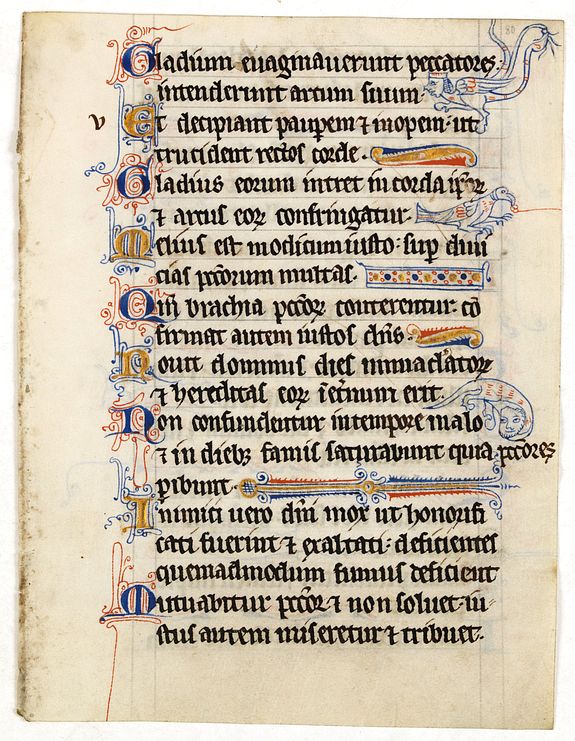 80
Gladium euaginauerunt peccatores.
intenderunt arcum suum.
v Et decipiant paupem ⁊ inopem. ut
trucident rectos corde.
Gladius eorum intret in corda ipoꝝ
⁊ arcus eoꝝ confringatur.
Melius est modicum iusto. suꝑ diui
cias pctorum multas.
Qm̄ brachia pctoꝝ conterentur. cō
firmat autem iustos dn̄s.
Nouit dominus dies inmaculatoꝝ
⁊ hereditas eoꝝ īet̄num erit.
Non confundentur in tempore malo
⁊ in diebꝫ famis saturabunt quia pctores
ꝑibunt.
Inimici uero dn̄i mox ut honorifi
cati fuerint ⁊ exaltati. deficientes
quemadmodum fumus deficient
Mutuabitur pctor ⁊ non soluet. iu-
stus autem miseretur ⁊ tribuet.